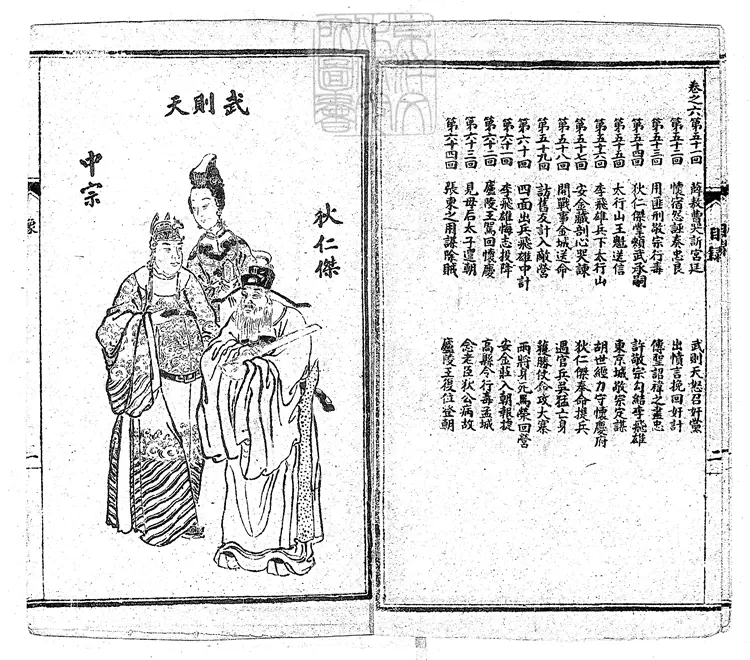 目錄
二
卷之六 第五十一回 薛敖曹哭訴宮廷 武則天怒召奸黨
第五十二回 懷宿怨誣奏忠良 出憤言挽回奸計
第五十三回 用匪刑敬宗行毒 傳聖詔禕之盡忠
第五十四回 狄仁傑掌頰武承嗣 許敬宗勾結李飛雄
第五十五回 太行山王魁送信 東京城敬宗定謀
第五十六回 李飛雄兵下太行山 胡世經力守懷慶府
第五十七回 安金藏剖心哭諫 狄仁傑奉命提兵
第五十八回 開戰事金城送命 遇官兵吳猛亡身
第五十九回 訪舊友計入敵營 獲勝仗命攻大寨
第六十回 四面出兵飛雄中計 兩將身死馬榮回營
第六十一回 李飛雄悔志投降 安金莊入朝報捷
第六十二回 廬陵王駕回懷慶 高縣令行毒孟城
第六十三回 見母后太子還朝 念老臣狄公病故
第六十四回 張柬之用謀除賊 廬陵王復位登朝
武則天
狄仁傑
中宗
像
二